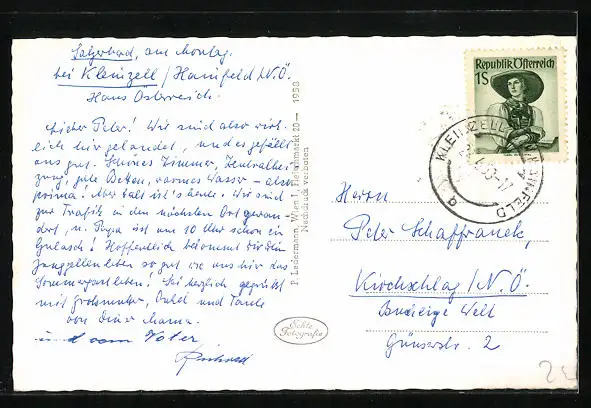 Salzerbad, am Montag.
bei Kleinzell / Hainfeld N.Ö.
Haus Österreich.
Lieber Peter! Wir sind also wirk-
lich hier gelandet, und es gefällt
uns gut. Schönes Zimmer, Zentralhei-
zung, gute Betten, warmes Wasser – also
prima! Aber kalt ist's heute. Wir sind
zur Trafik in den nächsten Ort gewan
dert, u. Papa isst um 10 Uhr schon ein
Gulasch! Hoffentlich bekommt dir dein
Junggesellenleben so gut wie uns hier das
Sei herzlich gegrüßt
mit Großmutter, Onkel und Tante
von Deiner Mama.
und vom Vater
P. Ledermann, Wien I, Fleischmarkt 20 — 1958
Nachdruck verboten
Echte
Fotografie
Republik Österreich
1S
KLEINZELL
Herrn
Peter Schaffranek,
Kirchschlag / N.Ö.
Bucklige Welt
Günserstr. 2